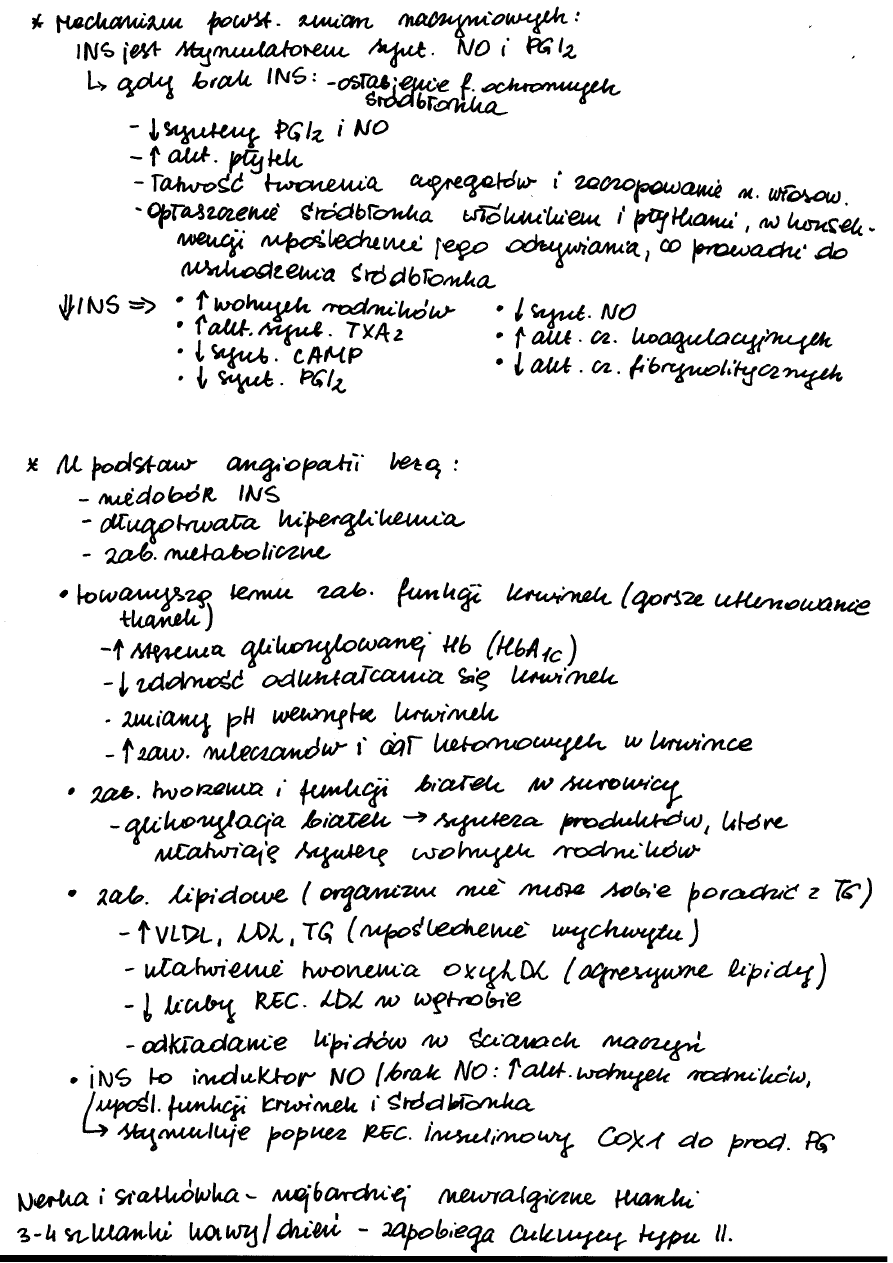 * Mechanizm powst. zmian naczyniowych:
INS jest stymulatorem synt. NO i PGI2
↳ gdy brak INS: - osłabienie f. ochronnych
śródbłonka
- ↓ syntezy PGI2 i NO
- ↑ akt. płytek
- Łatwość tworzenia agregatów i zaczopowanie n. włosow.
- Opłaszczenie śródbłonka włóknikiem i płytkami, w konsek-
wencji upośledzenie jego odżywiania, co prowadzi do
uszkodzenia śródbłonka
⇓INS => • ↑ wolnych rodników • ↓ synt. NO
• ↑ akt. synt. TXA2 • ↑ akt. cz. koagulacyjnych
• ↓ synt. CAMP • ↓ akt. cz. fibrynolitycznych
• ↓ synt. PGI2
* U podstaw angiopatii leżą:
- niedobór INS
- długotrwała hiperglikemia
- zab. metaboliczne
• towarzyszą temu zab. funkcji krwinek (gorsze utlenowanie
tkanek)
- ↑ stężenia glikozylowanej Hb (HbA1c)
- ↓ zdolność odkształcania się krwinek
- zmiany pH wewnątrz krwinek
- ↑ zaw. mleczanów i ciał ketonowych w krwince
• zab. tworzenia i funkcji białek w surowicy
- glikozylacja białek → synteza produktów, które
ułatwiają syntezę wolnych rodników
• zab. lipidowe (organizm nie może sobie poradzić z TG)
- ↑ VLDL, LDL, TG (upośledzenie wychwytu)
- ułatwienie tworzenia oxyLDL (agresywne lipidy)
- ↓ liczby REC. LDL w wątrobie
- odkładanie lipidów w ścianach naczyń
• INS to induktor NO /brak NO: ↑ akt. wolnych rodników,
/upośl. funkcji krwinek i śródbłonka
↳ stymuluje poprzez REC. insulinowy COX1 do prod. PG
Nerka i siatkówka - najbardziej newralgiczne tkanki
3-4 szklanki kawy/dzień - zapobiega cukrzycy typu II.